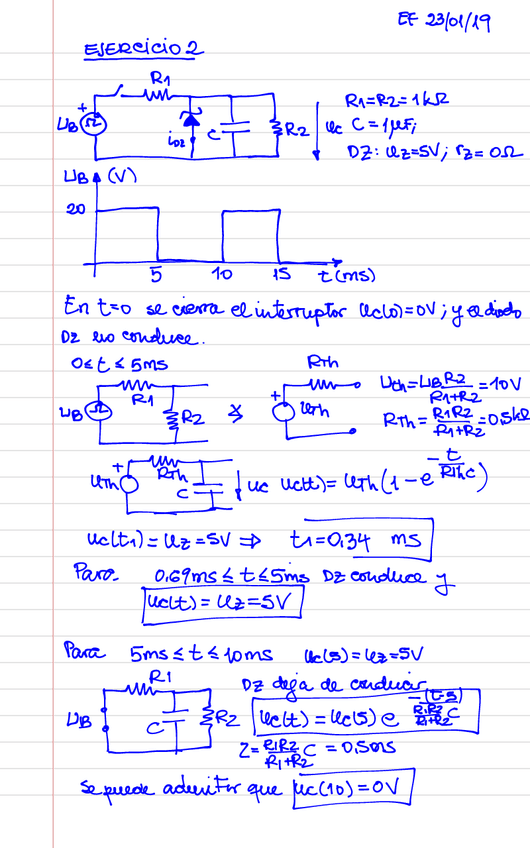 EF 23/01/19
EJERCICIO 2
R1
UB
+
iDZ
C
R2
uc
R1=R2=1kΩ
C=1μF;
DZ: UZ=5V; rZ=0Ω
UB (V)
20
5 10 15 t(ms)
En t=0 se cierra el interruptor uc(0)=0V; y el diodo
DZ no conduce.
0≤t≤5ms
UB R1 R2
+ RTh UTh
Uth=UB R2/(R1+R2)=10V
RTh=R1R2/(R1+R2)=0,5kΩ
UTh + RTh C uc
uc(t)=UTh(1-e^(-t/RThC))
uc(t1)=UZ=5V ⇒ t1=0,34 ms
Para 0.69ms≤t≤5ms DZ conduce y
uc(t)=UZ=5V
Para 5ms≤t≤10ms uc(5)=UZ=5V
DZ deja de conducir
UB R1 C R2
uc(t)=uc(5)e^(-(t-5)/(R1R2/(R1+R2) C))
Z=R1R2/(R1+R2) C=0,5ms
Se puede admitir que uc(10)=0V